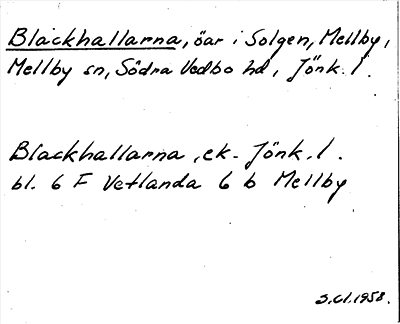 Blackhallarna, öar i Solgen, Mellby,
Mellby sn, Södra Vedbo hd, Jönk. l.
Blackhallarna, ek. Jönk. l.
bl. 6 F Vetlanda 6 b Mellby
S.Cl.1958.